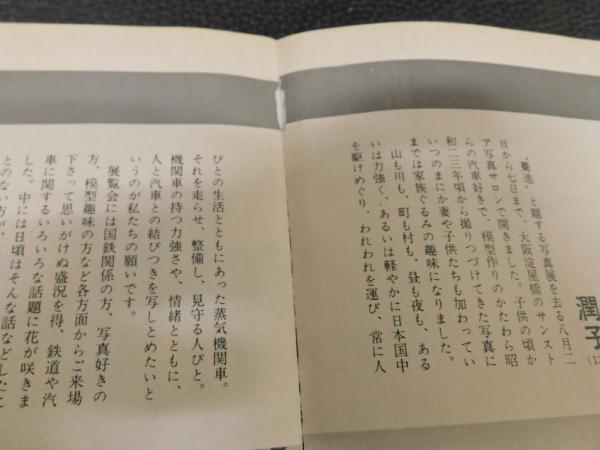 潤子
“驀進”と題する写真展を去る八月二
日から七日まで、大阪淀屋橋のサンスト
ア写真サロンで開きました。子供の頃か
らの汽車好きで、模型作りのかたわら昭
和二三年頃から撮りつづけてきた写真に
いつのまにか妻や子供たちも加わってい
までは家族ぐるみの趣味になりました。
山も川も、町も村も、昼も夜も、ある
いは力強く、あるいは軽やかに日本国中
を駆けめぐり、われわれを運び 常に人
びとの生活とともにあった蒸気機関車。
それを走らせ、整備し、見守る人びと。
機関車の持つ力強さや、情緒とともに、
人と汽車との結びつきを写しとめたいと
いうのが私たちの願いです。
展覧会には国鉄関係の方、写真好きの
方、模型趣味の方など各方面からご来場
下さって思いがけぬ盛況を得、鉄道や汽
車に関するいろいろな話題に花が咲きま
した。中には日頃はそんな話などしたこ
とのない方が